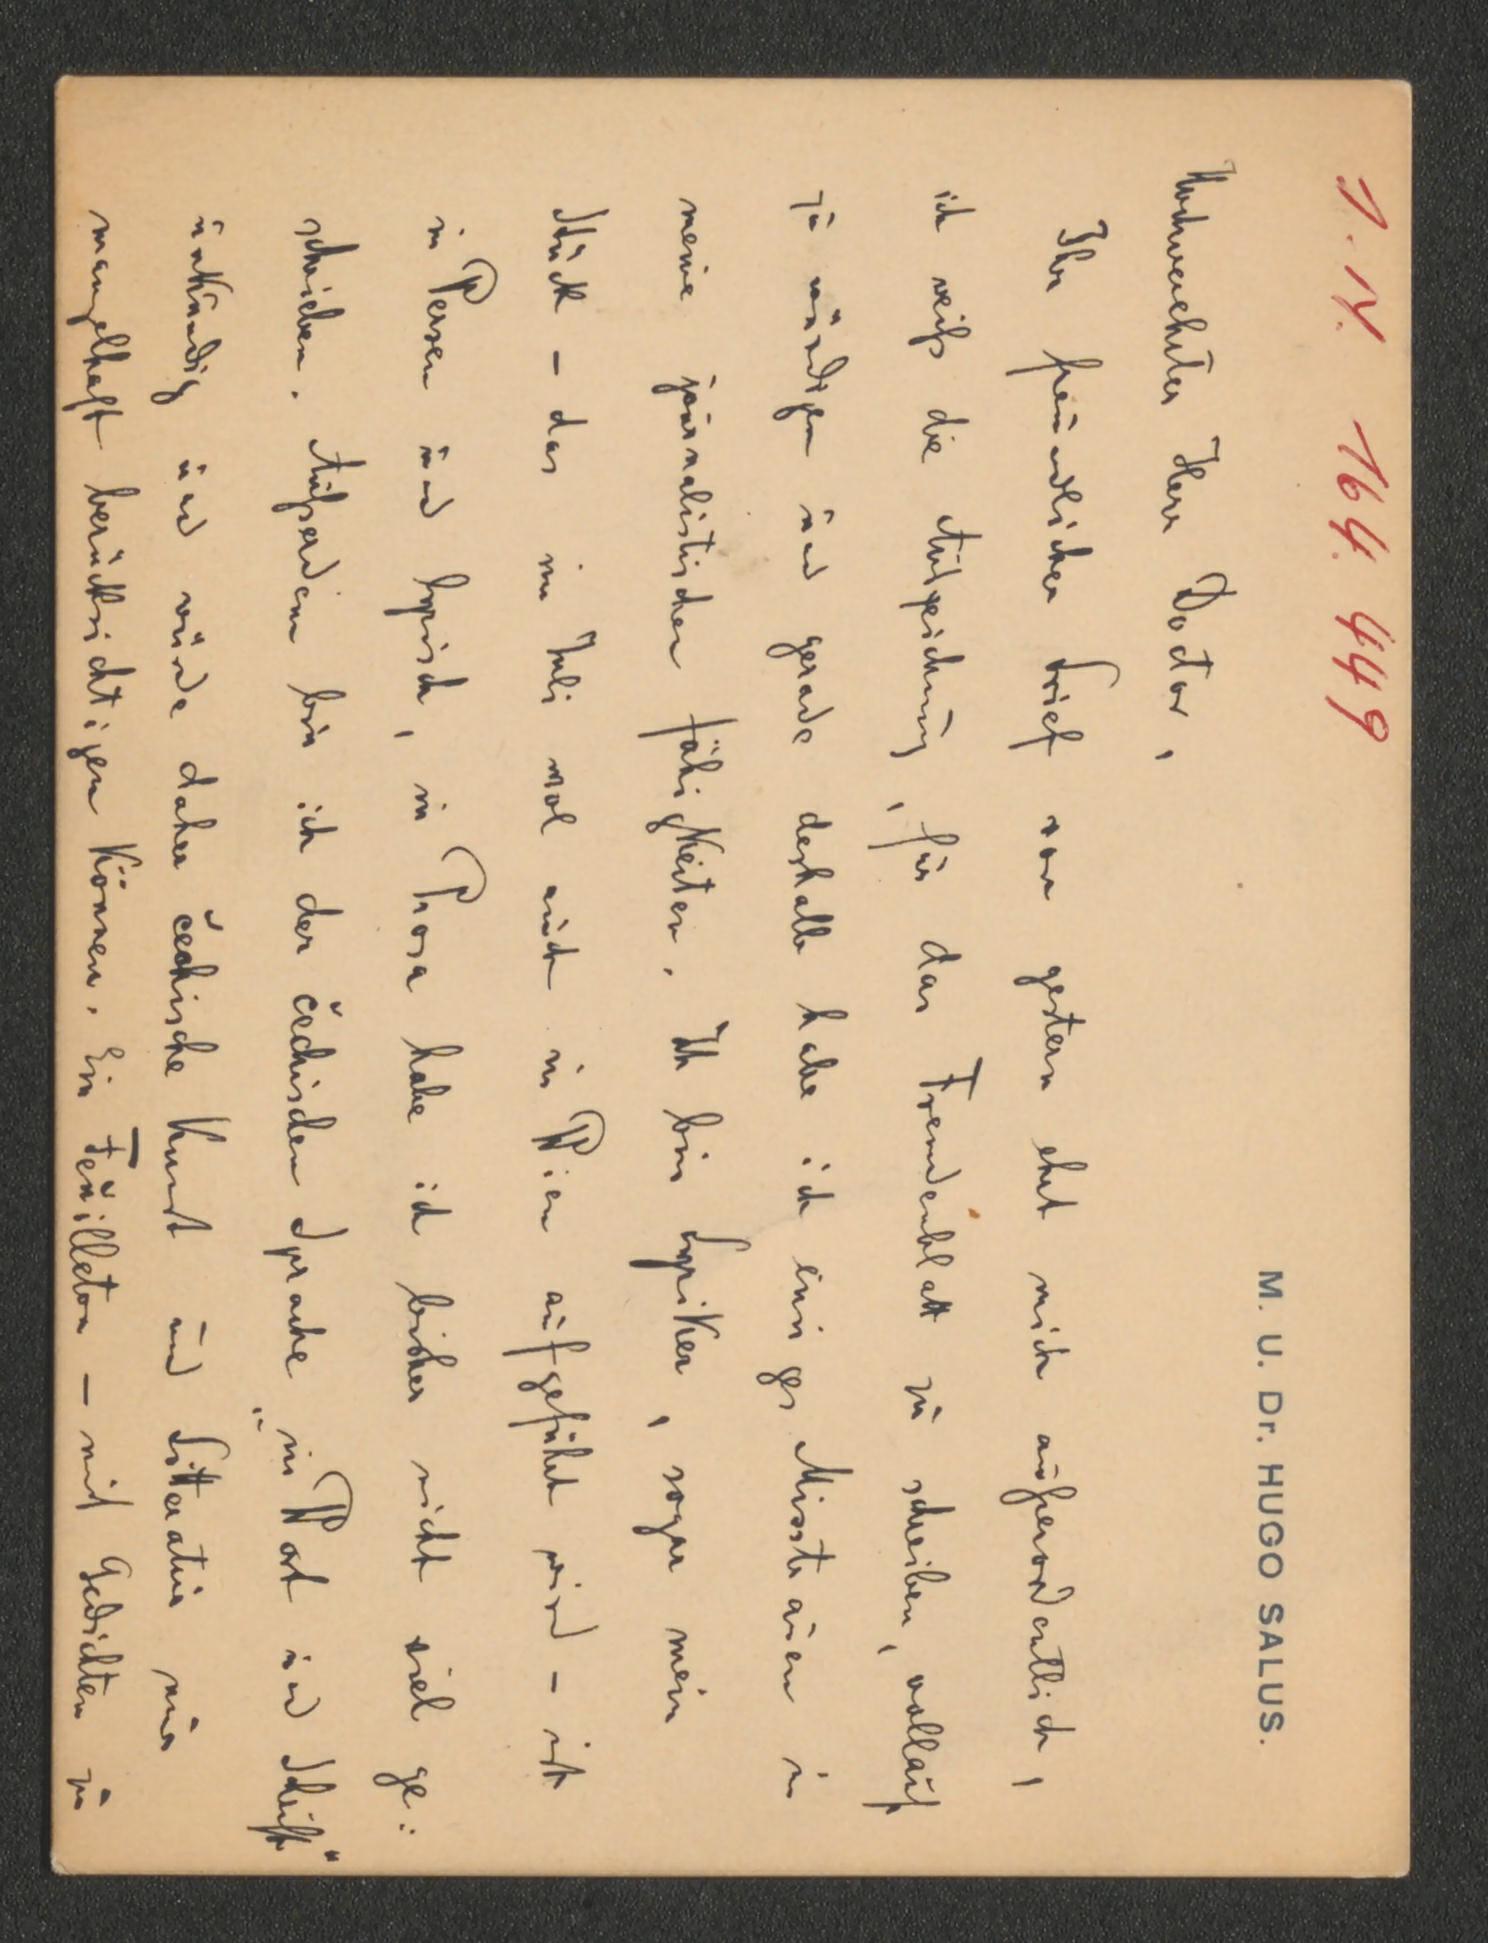 I. N. 164.449
M. U. Dr. HUGO SALUS.
Hochverehrter Herr Doctor,
Ihr freundlicher Brief von gestern ehrt mich außerordentlich,
ich weiß die Auszeichnung, für das Fremdenblatt zu schreiben, vollauf
zu würdigen und gerade deshalb habe ich einiges Misstrauen in
meine journalistischen Fähigkeiten. Ich bin Lyriker, sogar mein
Stück – das im Juli wol auch in Wien aufgeführt wird – ist
in Versen und lyrisch, in Prosa habe ich bisher nicht viel ge:
schrieben. Außerdem bin ich der čechischen Sprache „in Wort und Schrift“
unkundig und würde daher čechische Kunst und Litteratur nur
mangelhaft berücksichtigen können. Ein Feuilleton – mit Gedichten zu